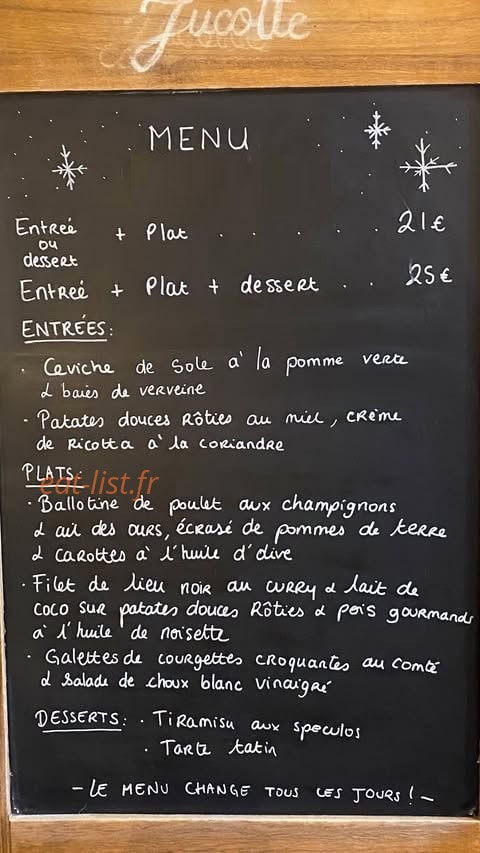 Jucotte
MENU
Entreé + Plat . . . . . 21€
ou
dessert
Entreé + Plat + dessert . . 25€
ENTRÉES:
· Ceviche de Sole a' la pomme verte
& baies de verveine
· Patates douces Rôties au miel, crème
de Ricotta a' la coriandre
PLATS:
eat-list.fr
· Ballotine de poulet aux champignons
& ail des ours, écrasé de pommes de terre
& carottes a' l'huile d'olive
· Filet de lieu noir au curry & lait de
coco sur patates douces Rôties & pois gourmands
a' l'huile de noisette
· Galettes de courgettes croquantes au comté
& salade de choux blanc vinaigré
DESSERTS: · Tiramisu aux speculos
· Tarte tatin
- LE MENU CHANGE TOUS LES JOURS! -